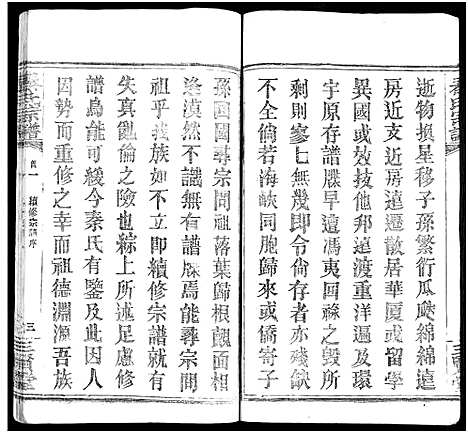 逝物換星移子孫繁衍瓜瓞綿綿遠
房近支所住遷散居華厦或留學
異國或效技他邦遠渡重洋遍及環
宇原存譜牒早遭馮夷回祿之毀所
剩則寥七無幾即令尚存者亦殘缺
不全倘若海峽同胞歸來或僑寄子
孫回國尋宗問祖落葉歸根覿面相
逢漠然不識無有譜牒焉能尋宗問
祖乎我族如不立即續修宗譜就有
失真亂倫之險也綜上所述足慮修
譜烏能可緩今秦氏有鑒及此因人
因勢而重修之幸而祖德淵源吾族
宗譜
首一
續修宗譜序
三
三賢堂
秦氏宗譜